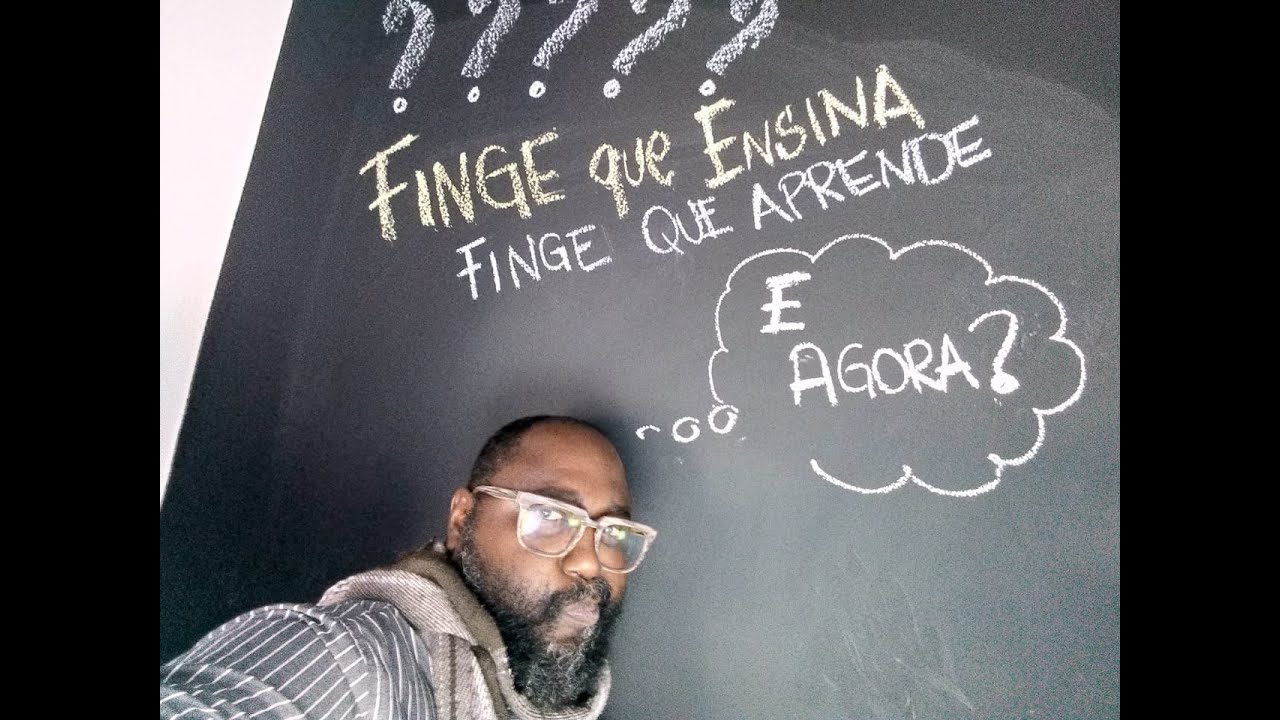 ?????
FINGE que ENSINA
FINGE QUE APRENDE
E
AGORA?